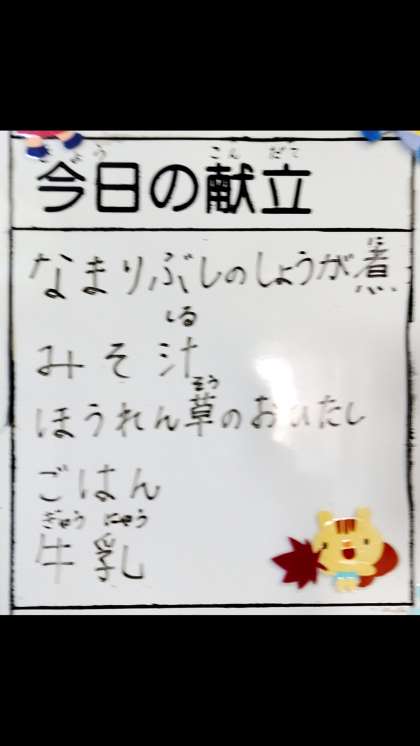 きょう こんだて
今日の献立
に
なまりぶしのしょうが煮
しる
みそ汁
そう
ほうれん草のおひたし
ごはん
ぎゅう にゅう
牛乳